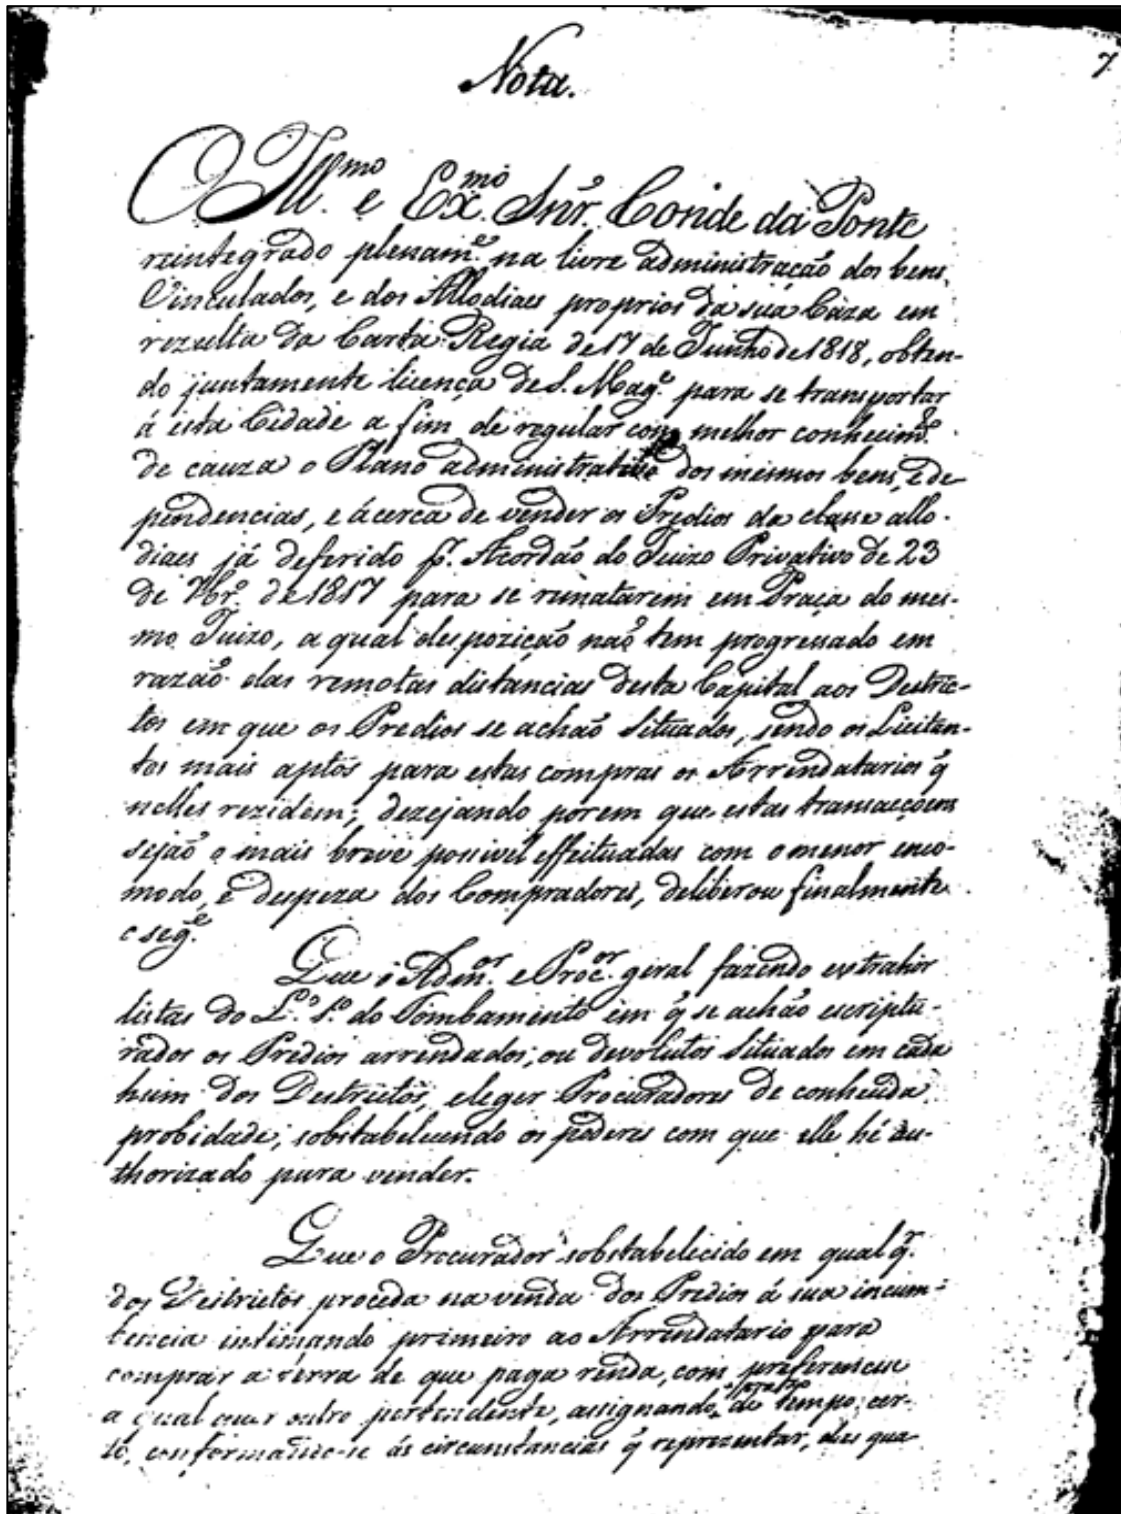 7
Nota.
O Ill.mo e Ex.mo Snr. Conde da Ponte
reintegrado plenam.e na livre administração dos bens
Vinculados, e dos Allodiaes proprios da sua Caza em
rezulta da Carta Regia de 17 de Junho de 1818, obten-
do juntamente licença de S. Mag.e para se transportar
á esta Cidade a fim de regular com melhor conhecim.o
de cauza o Plano administrativo dos mesmos bens, e de-
pendencias, e ácerca de vender os Predios da classe allo-
diaes já deferido p.r Acordão do Juizo Privativo de 23
de 7br.o de 1817 para se rematarem em Praça do mes-
mo Juizo, a qual despozição não tem progressado em
razão das remotas distancias desta Capital aos Destric-
tos em que os Predios se achão situados, sendo os Licitan-
tes mais aptos para estas compras os Arrendatarios q̃
nelles rezidem; dezejando porem que estas transacçoens
sejão o mais breve possivel effeituadas com o menor enco-
modo, e despeza dos Compradores, deliberou finalmente
o seg.e
Que o Adm.or e Proc.or geral fazendo extrahir
listas do L.o 1.o do Tombamento em q̃ se achão escriptu-
rados os Predios arrendados, ou devolutos situados em cada
hum dos Destrictos, eleger Procuradores de conhecida
probidade, sobstabelecendo os poderes com que elle hé au-
thorizado para vender.
Que o Procurador sobstabelecido em qualq.r
dos Destrictos proceda na venda dos Predios á sua incum-
bencia intimando primeiro ao Arrendatario para
comprar a terra de que paga renda, com preferencia
a qual quer outro pertendente, assignando, de tempo cer-
to, conformando-se ás circunstancias q̃ reprezentar, das qua-